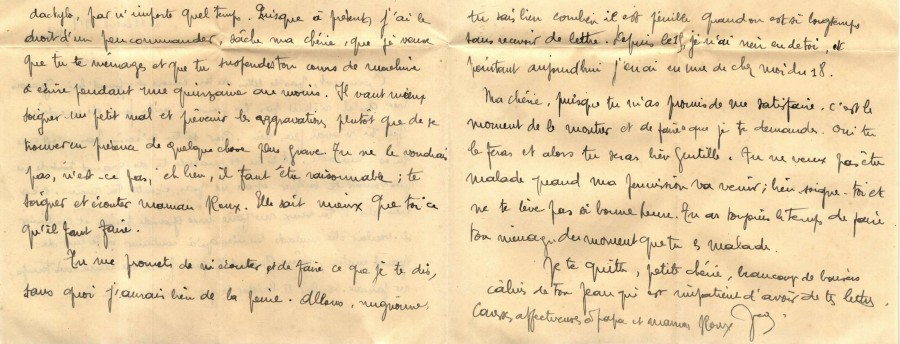 dactylo, par n'importe quel temps. Puisque à présent, j'ai le
droit d'un peu commander, sâche ma chérie, que je veux
que tu te ménages et que tu suspendes ton cours de machine
à écrire pendant une quinzaine au moins. Il vaut mieux
soigner un petit mal et prévenir les aggravations plutôt que de se
trouver en présence de quelque chose plus grave. Tu ne le voudrais
pas, n'est-ce pas, eh bien, il faut être raisonnable ; te
soigner et écouter maman Roux. Elle sait mieux que toi ce
qu'il faut faire.
Tu me promets de m'écouter et de faire ce que je te dis,
sans quoi j'aurais bien de la peine. Allons, mignonne
tu sais bien combien il est pénible quand on est si longtemps
sans recevoir de lettre. Depuis le je n'ai rien eu de toi, et
pourtant aujourd'hui j'en ai eu une de chez moi du 18.
Ma chérie, puisque tu m'as promis de me satisfaire. C'est le
moment de le montrer et de faire ce que je te demande. Oui tu
le feras et alors tu seras bien gentille. Tu ne veux pas être
malade quand ma permission va venir ; bien soigne-toi et
ne te lève pas de bonne heure. Tu as toujours le temps de faire
ton ménage du moment que tu es malade.
Je te quitte, petite chérie, beaucoup de baisers
câlins de ton Jean qui est impatient d'avoir de tes lettres.
Caresses affectueuses à papa et maman Roux Jean